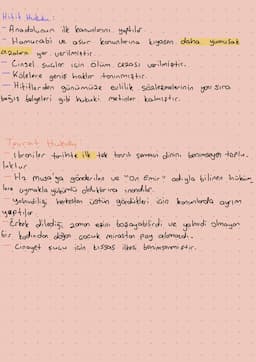 Hitit Hukuku :
- Anadolunun ilk kanunlarını yaptılar.
- Hamurabi ve asur kanunlarına kıyasen daha yumuşak
cezalara yer verilmiştir.
- Cinsel suçlar için ölüm cezası verilmiştir.
- Kölelere geniş haklar tanınmıştır.
- Hititlerden günümüze evlilik sözleşmelerinin yanı sıra
bağış belgeleri gibi hukuki metinler kalmıştır.
Tevrat Hukuku
- İbraniler tarihte ilk tek tanrılı semavi dinini benimseyen toplu-
luktur.
- Hz. Musa'ya gönderilen ve "On Emir" adıyla bilinen hüküm-
lere uymakla yükümlü olduklarına inandılar.
- Yahudiliği herkesten üstün gördükleri için kanunlarda ayrım
yaptılar
- Erkek dilediği zaman eşini boşayabilirdi ve yahudi olmayan
bir kadından doğan çocuk mirastan pay alamazdı.
- Cinayet suçu için kıssas ilkesi benimsenmiştir.